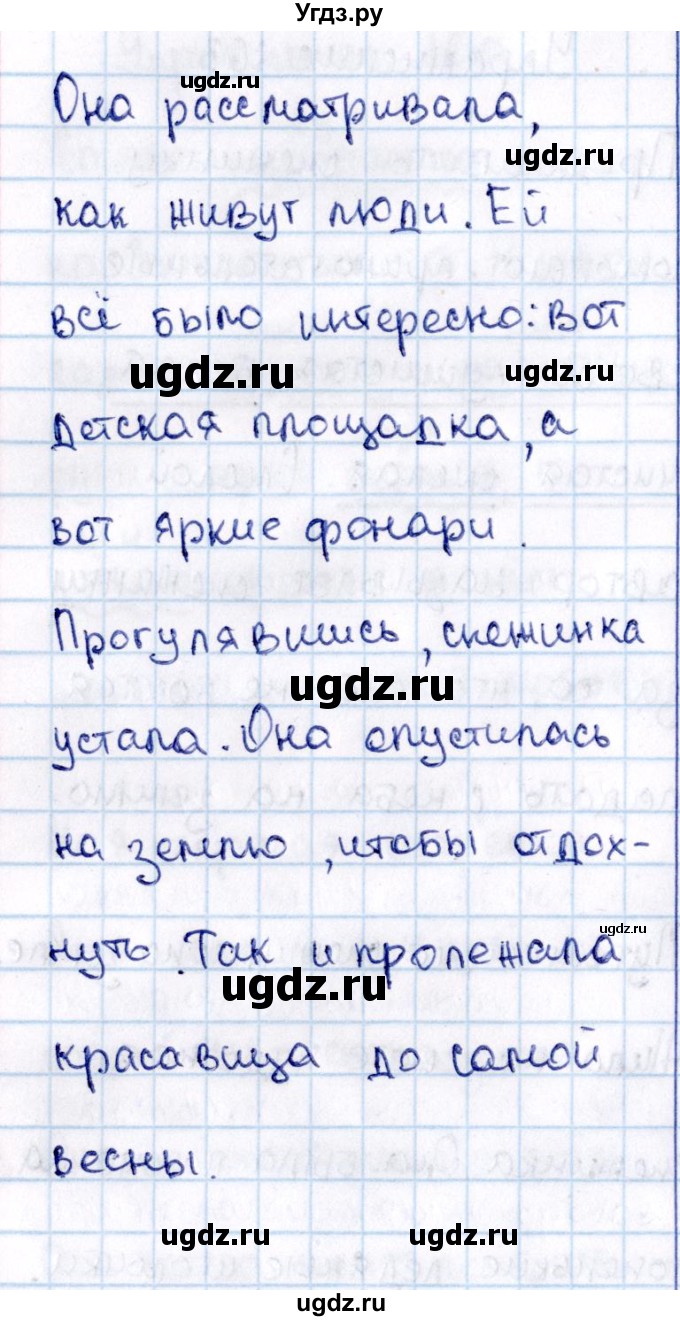 Угдз.ру
ugdz.ru
Она рассматривала,
ugdz.ru
как живут люди. Ей
всё было интересно: вот
ugdz.ru ugdz.ru
детская площадка, а
вот яркие фонари.
Прогулявшись, снежинка
ugdz.ru
устала. Она опустилась
на землю, чтобы отдох-
ugdz.ru
нуть. Так и пролежала
ugdz.ru
красавица до самой
весны.
ugdz.ru ugdz.ru
ugdz.ru